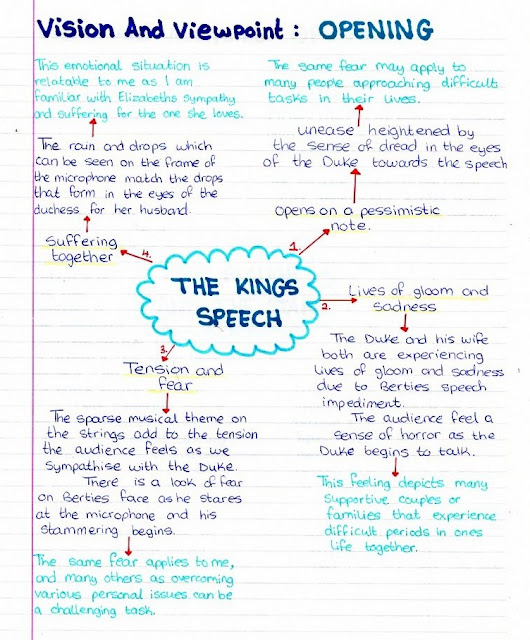 Vision And Viewpoint: OPENING
THE KINGS
SPEECH
1.
Opens on a pessimistic
note.
unease heightened by
the sense of dread in the eyes
of the Duke towards the speech
The same fear may apply to
many people approaching difficult
tasks in their lives.
2.
Lives of gloom and
sadness
The Duke and his wife
both are experiencing
lives of gloom and sadness
due to Berties speech
impediment.
The audience feel a
sense of horror as the
Duke begins to talk.
This feeling depicts many
supportive couples or
families that experience
difficult periods in ones
life together.
3.
Tension and
fear
The sparse musical theme on
the strings add to the tension
the audience feels as we
sympathise with the Duke.
There is a look of fear
on Berties face as he stares
at the microphone and his
stammering begins.
The same fear applies to me,
and many others as overcoming
various personal issues can be
a challenging task.
4.
Suffering
together
The rain and drops which
can be seen on the frame of
the microphone match the drops
that form in the eyes of the
duchess for her husband.
This emotional situation is
relatable to me as I am
familiar with Elizabeths sympathy
and suffering for the one she loves.